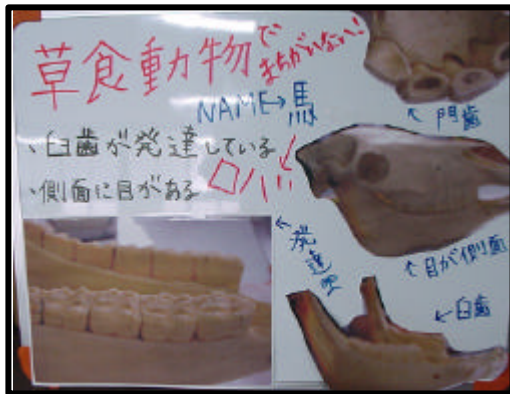 草食動物で
まちがいない!
NAME→馬
・臼歯が発達している
・側面に目がある
ロバ!
←門歯
←目が側面
←臼歯